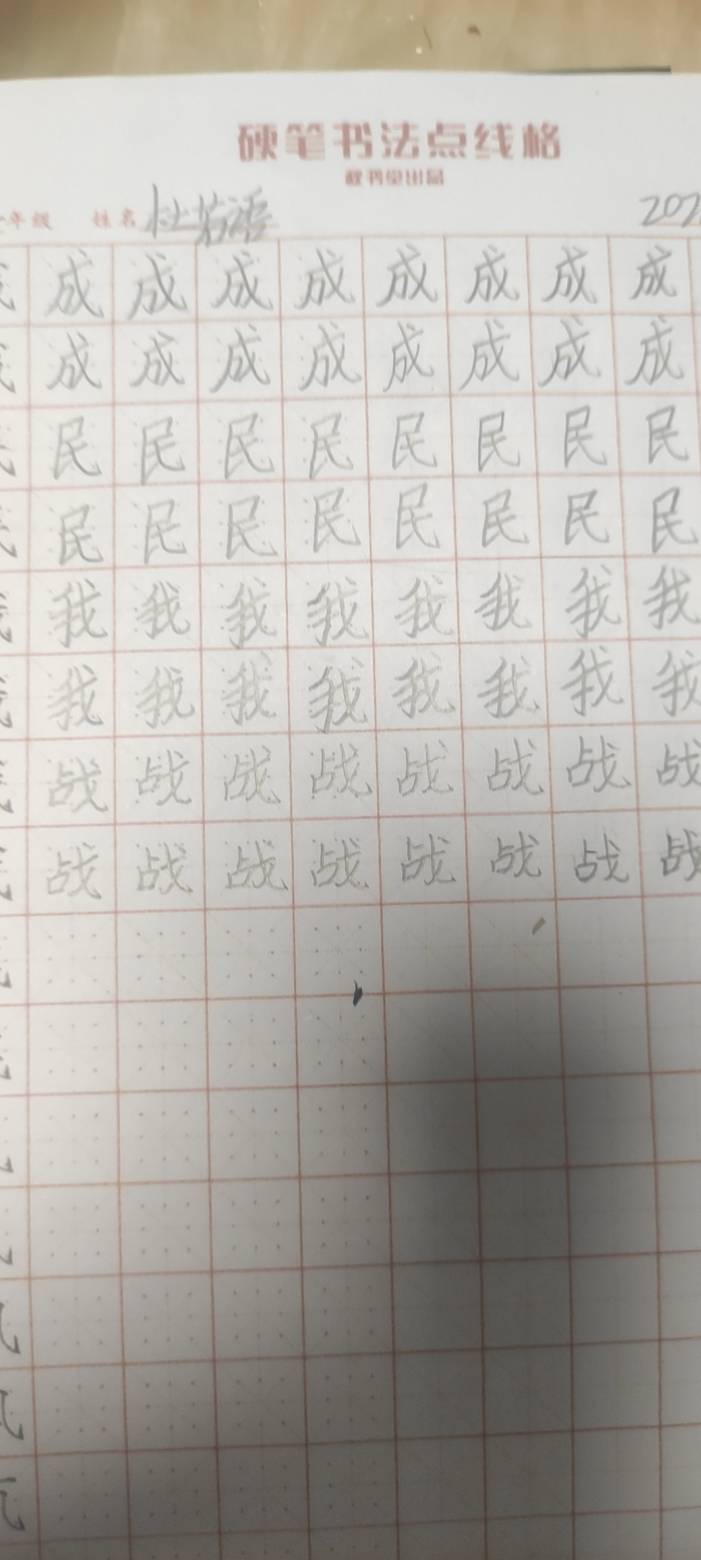 硬笔书法点线格
年级 姓名 杜若语 202
成 成 成 成 成 成 成 成
成 成 成 成 成 成 成 成
民 民 民 民 民 民 民 民
民 民 民 民 民 民 民 民
我 我 我 我 我 我 我 我
我 我 我 我 我 我 我 我
战 战 战 战 战 战 战 战
战 战 战 战 战 战 战 战